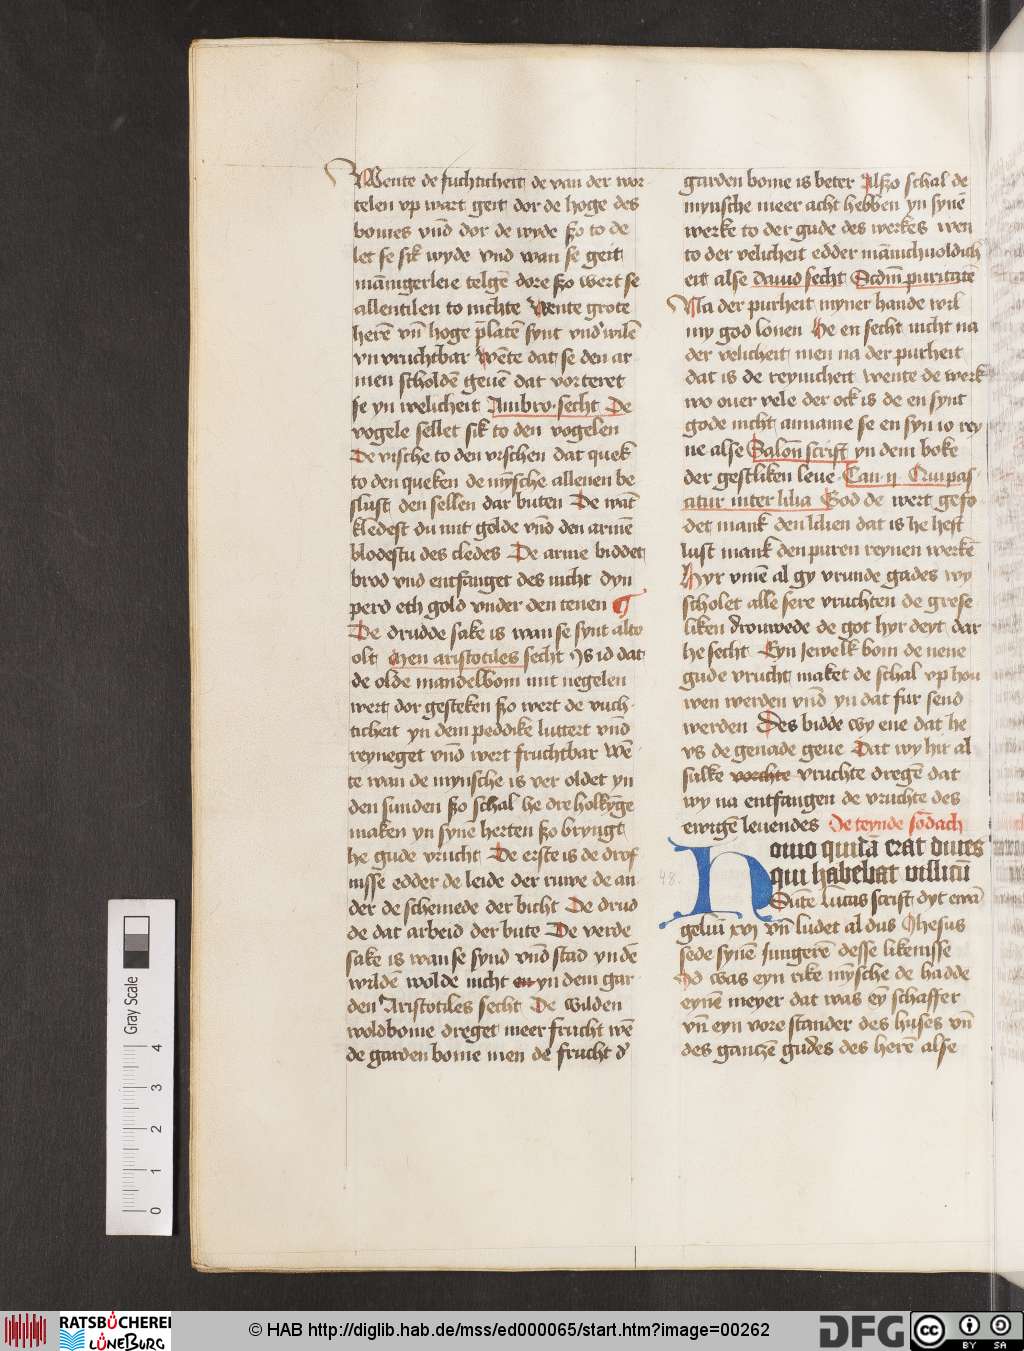 Wente de fuchticheit de van der wor
telen vp wart geit dor de hoge des
bomes vnd dor de wyde ßo to de
let se sik wyde vnd wan se geit
mānigerleie telgē dore ßo wert se
allentilen to nichte Wente grote
herē vn̄ hoge p̄latē synt vnd wilē
vn vruchtbar Wēte dat se den ar
men scholdē geuē dat vorteret
se yn welicheit Ambro secht De
vogele sellet sik to den vogelen
De vische to den vischen dat quek
to den queken de mȳsche allenen be
slust den sellen dar buten De wāt
kledest du mit golde vnd den armē
blodestu des cledes De arme biddet
brod vnd entfanget des nicht dyn
perd eth gold vnder den tenen ¶
De drudde sake is wan se synt alto
olt Men aristotiles secht Is id dat
de olde mandelbom mit negelen
wert dor gesteken ßo wert de vuch
ticheit yn dem peddikē luttert vnd
reyneget vnd wert fruchtbar Wē
te wan de mynsche is ver oldet yn
den sunden ßo schal he dre holkyge
maken yn syne herten ßo bryngt
he gude vrucht De erste is de drof
nisse edder de leide der ruwe de an
der de schemede der bicht De drud
de dat arbeid der bute De verde
sake is wan se synd vnd stad yn dē
wildē wolde nicht en yn dem gar
den Aristotiles secht De wilden
woldbome dreget meer frucht wē
de garden bome men de frucht d'
garden bome is beter Alßo schal de
mynsche meer acht hebben yn synē
werke to der gude des werkes wen
to der velicheit edder mānichuoldich
eit alse dauid secht Scdm̄ puritatē
Na der purheit myner hande wil
my god lonen He en secht nicht na
der velicheit men na der purheit
dat is de reynicheit wente de werk
wo ouer vele der ock is de en synt
gode nicht anname se en syn io rey
ne alse Salom̄ scrift yn dem boke
der gestliken leue Can ij Qui pas
citur inter lilia God de wert gefo
det mank den lilien dat is he heft
lust mank den puren reynen werkē
Hyr vmē al gy vrunde gades wy
scholet alle sere vruchten de grese
liken drouwede de got hyr deyt dar
he secht Eyn jewelk bom de nene
gude vrucht maket de schal vp hou
wen werden vnd yn dat fur send
werden Des bidde wy ene dat he
vs de genade geue Dat wy hir al
sulke vorchte vruchte dregē dat
wy na entfangen de vruchte des
ewigē leuendes De teynde sōdach
Homo quidā erat diues
qui habebat villicū
48.
Sūte Lucas scrift dyt ewā
geliū xvj vn̄ ludet al dus Ihesus
sede synē Jungerē desse likenisse
Id was eyn rike mȳsche de hadde
eynē meyer dat was eȳ schaffer
vn̄ eyn vore stander des huses vn̄
des gantzē gudes des herē alse
Gray Scale
0 1 2 3 4
RATSBÜCHEREI
LÜNEBURG
© HAB http://diglib.hab.de/mss/ed000065/start.htm?image=00262
DFG
cc
BY SA